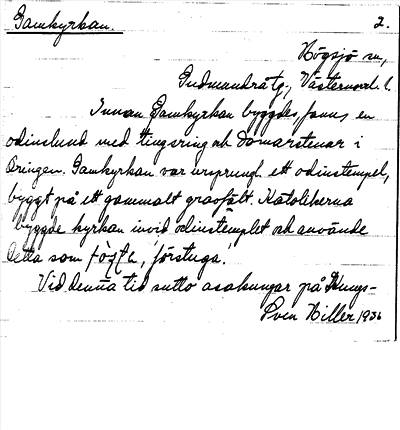 Gamkyrkan. 2.
Högsjö sn,
Gudmundrå tg., Västernorrl. l.
Innan Gamkyrkan byggdes, fanns en
odinslund med tingsring och domarstenar i
ringen. Gamkyrkan var urspungl. ett odinstempel,
byggt på ett gammalt gravfält. Katolikerna
byggde kyrkan invid odinstemplet och använde
detta som förstuga.
Vid denna tid sutto asakungar på Kungs-
Sven Hiller 1936